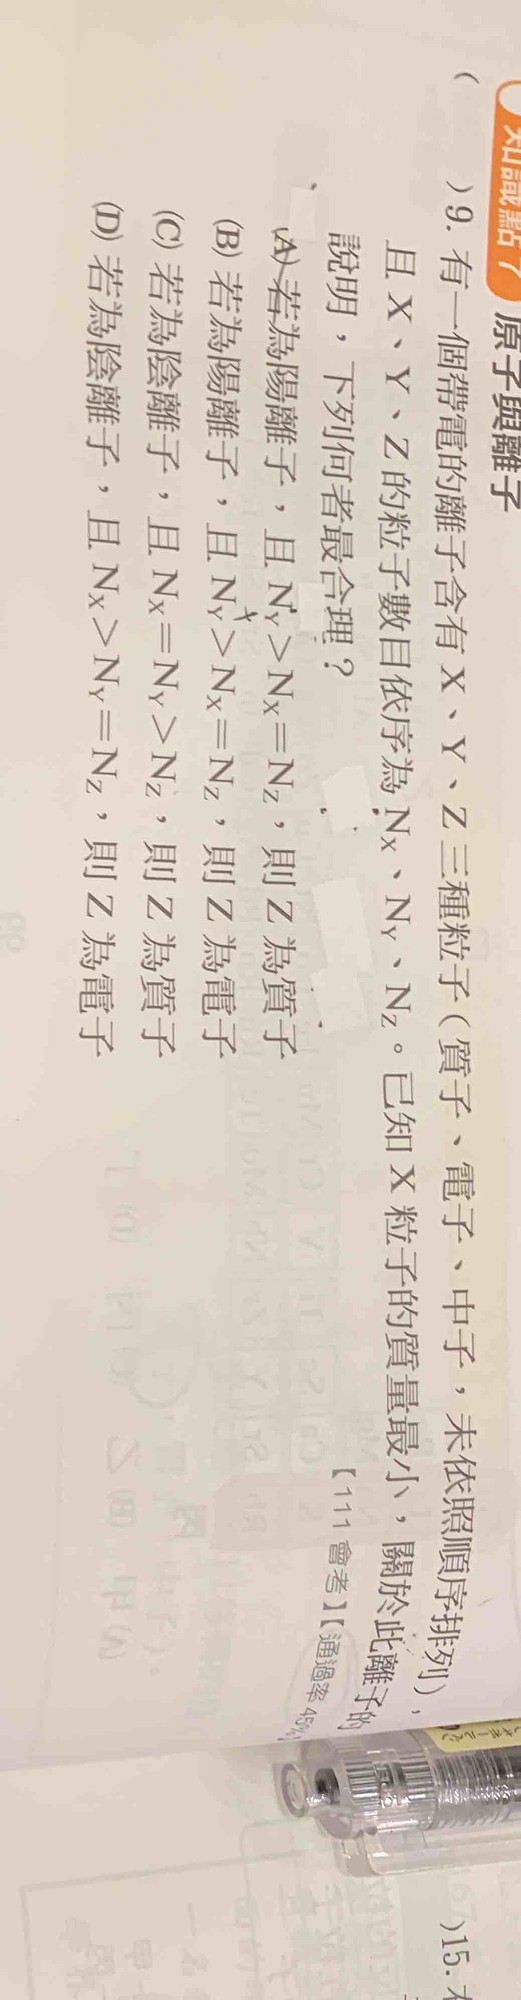 知識點7 原子與離子
( )9. 有一個帶電的離子含有 X、Y、Z 三種粒子(質子、電子、中子,未依照順序排列),
且 X、Y、Z 的粒子數目依序為 N_X、N_Y、N_Z。已知 X 粒子的質量最小,關於此離子的
說明,下列何者最合理? 【111 會考】【通過率 45%】
(A) 若為陽離子,且 N_Y>N_X=N_Z,則 Z 為質子
(B) 若為陽離子,且 N_Y>N_X=N_Z,則 Z 為電子
(C) 若為陰離子,且 N_X=N_Y>N_Z,則 Z 為質子
(D) 若為陰離子,且 N_X>N_Y=N_Z,則 Z 為電子
)15.